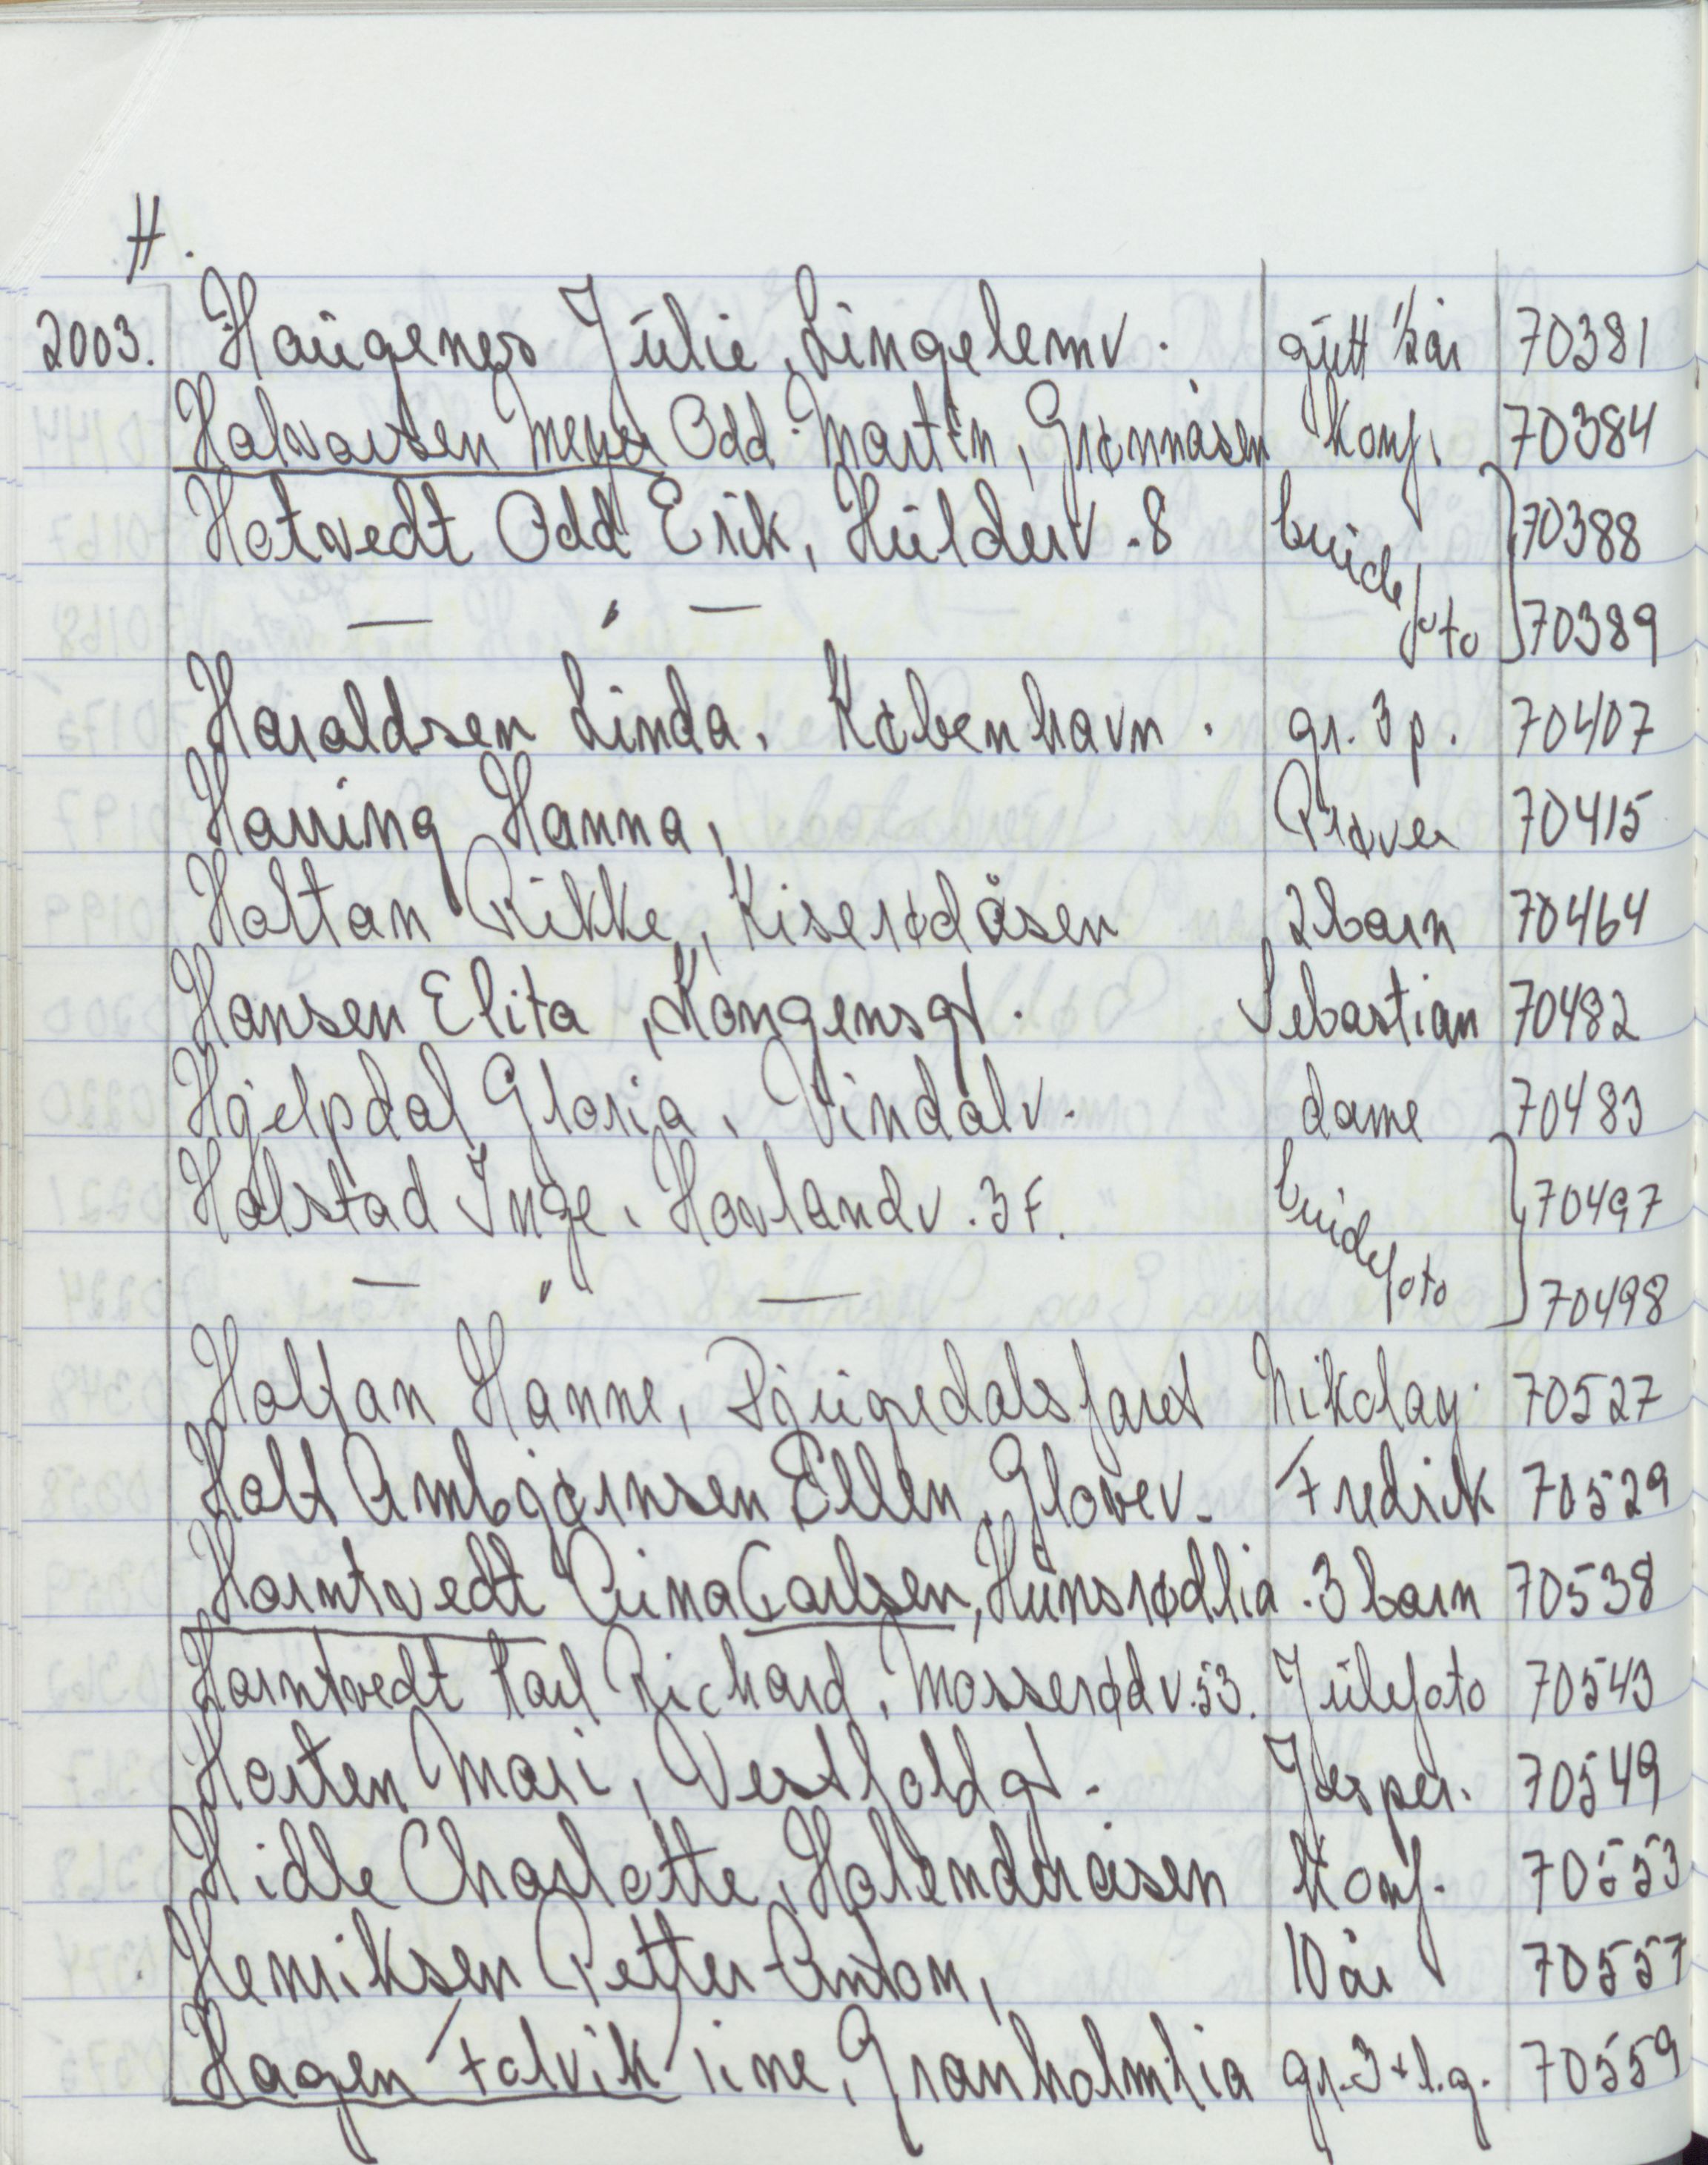 H.
2003. Haugenes Julie, Lingelemv. gutt 1/2 år 70381
Halvorsen Meyer Odd Martin, Grønnåsen Konf. 70384
Hotvedt Odd Erik, Hulderv. 8 brudefoto 70388
— " — 70389
Haraldsen Linda, København. gr. 3 p. 70407
Harring Hanna, Prøver 70415
Holtan Rikke, Kiserødåsen 2 barn 70464
Hansen Elita, Kongensgt. Sebastian 70482
Hjelpdal Gloria, Vindalv. dame 70483
Halstad Inge, Hovlandv. 3 F. brudefoto 70497
— " — 70498
Holtan Hanne, Djupedalsfaret Nikolay 70527
Holt Ambjørnsen Ellen, Gloverv. Fredrik 70529
Horntvedt Eina Carlsen, Hunsrødlia. 3 barn 70538
Horntvedt Karl Richard, Mosserødv. 53. Julefoto 70543
Horten Mari, Vestfoldgt. Jesper. 70549
Hidle Charlotte, Holenderåsen Konf. 70553
Henriksen Petter Anton, 10 år 70557
Hagen Falvik Tine, Granholmlia gr. 3 + l.g. 70559